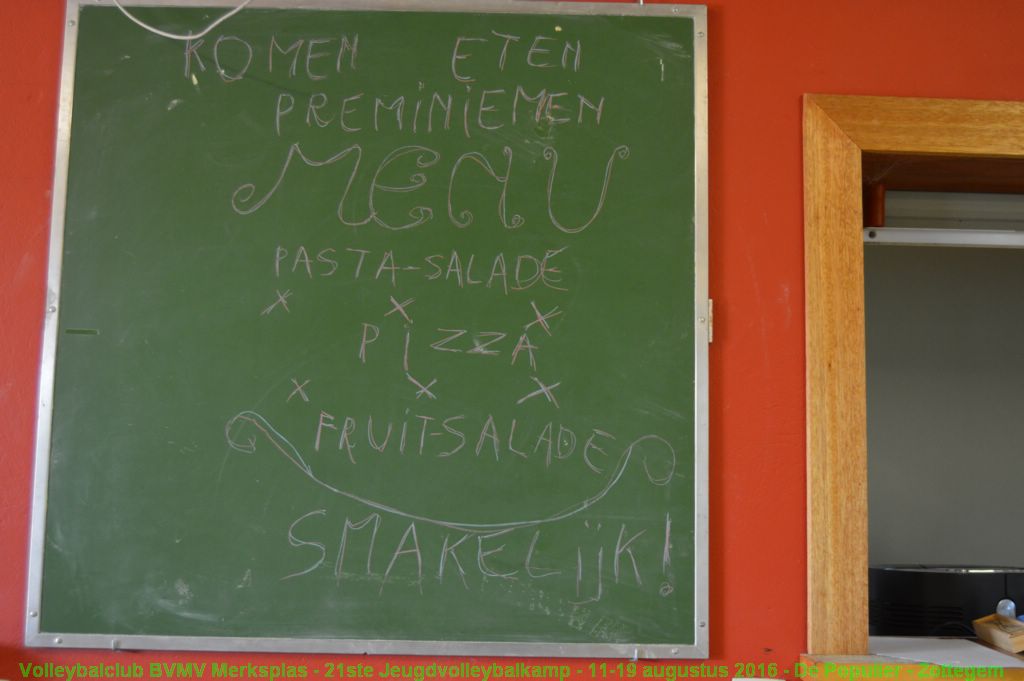 KOMEN ETEN
PREMINIEMEN
MENU
PASTA-SALADE
x x x
PiZZA
x x x
FRUiT-SALADE
SMAKELijK!
Volleybalclub BVMV Merksplas - 21ste Jeugdvolleybalkamp - 11-19 augustus 2016 - De Populier - Zottegem